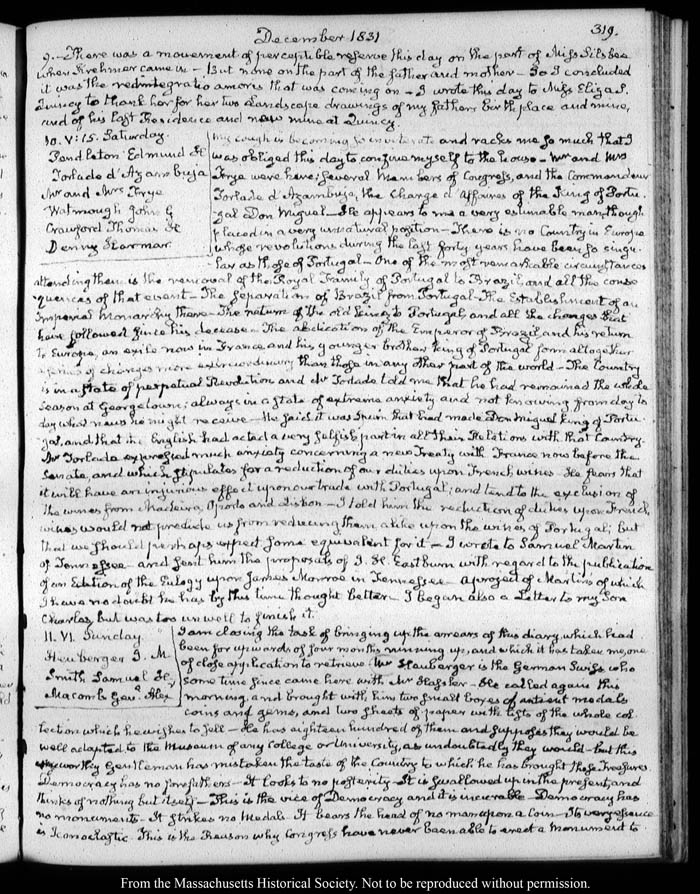 December 1831
319.
9.— There was a movement of perceptible reserve this day on the part of Miss Silsbee
when Krehmer came in — But none on the part of the father and mother — So I concluded
it was the redintegratio amoris that was coming on — I wrote this day to Miss Eliza S.
Quincy to thank her for her two Landscape drawings of my fathers birth place and mine,
and of his last Residence and now mine at Quincy.
10. V:15. Saturday
Pendleton Edmund H
Torlade d'Azambuja
Mr and Mrs Frye
Watmough John G
Crawford Thomas H
Denny Harmar
My cough is becoming so inveterate and racks me so much that I
was obliged this day to confine myself to the house — Mr and Mrs
Frye were here; several Members of Congress, and the Commandeur
Torlade d'Azambuja, the Charge d'Affaires of the King of Portu-
gal Don Miguel — He appears to me a very estimable man, though
placed in a very unnatural position — There is no Country in Europe
whose revolutions during the last forty years have been so singu-
lar as those of Portugal — One of the most remarkable circumstances
attending them is the removal of the Royal Family of Portugal to Brazil, and all the conse
quences of that event — The separation of Brazil from Portugal — The Establishment of an
Imperial Monarchy there — The return of the old King to Portugal, and all the changes that
have followed since his decease. The abdication of the Emperor of Brazil, and his return
to Europe, an exile now in France and his younger brother King of Portugal form altogether
a series of changes more extraordinary than those in any other part of the world — The Country
is in a state of perpetual Revolution and Mr Torlade told me that he had remained the whole
season at Georgetown; always in a state of extreme anxiety and not knowing from day to
day what news he might receive — He said it was Spain that had made Don Miguel King of Portu-
gal, and that the English had acted a very selfish part in all their Relations with that Country.
Mr Torlade expressed much anxiety concerning a new Treaty with France now before the
Senate, and which stipulates for a reduction of our duties upon French wines — He fears that
it will have an injurious effect upon our trade with Portugal; and tend to the exclusion of
the wines from Madeira, Oporto and Lisbon — I told him the reduction of duties upon French
wines would not preclude us from reducing them alike upon the wines of Portugal; but
that we should perhaps expect some equivalent for it — I wrote to Samuel Martin
of Tennessee — and sent him the proposals of J. H. Eastburn with regard to the publication
of an Edition of the Eulogy upon James Monroe in Tennessee — A project of Martin's of which
I have no doubt he has by this time thought better — I began also a Letter to my Son
Charles, but was too unwell to finish it.
11. VI. Sunday.
Heuberger J. M.
Smith Samuel H
Macomb Genl. Alexr
I am closing the task of bringing up the arrears of this diary, which had
been for upwards of four months running up, and which it has taken me, one
of close application to retrieve. Mr Hauberger is the German Swiss who
some time since came here with Mr Hassler — He called again this
morning, and brought with him two small boxes of antient medals
coins and gems, and two sheets of paper with lists of the whole col-
lection which he wishes to sell — He has eighteen hundred of them and supposes they would be
well adapted to the Museum of any College or University, as undoubtedly they would — but this
worthy Gentleman has mistaken the taste of the Country to which he has brought these Treasures.
Democracy has no forefathers — It looks to no posterity — It is swallowed up in the present, and
thinks of nothing but itself — This is the vice of Democracy and it is incurable — Democracy has
no monuments — It strikes no Medals — It bears the head of no man upon a Coin — Its very essence
is Iconoclastic. This is the Reason why Congress have never been able to erect a Monument to
From the Massachusetts Historical Society. Not to be reproduced without permission.